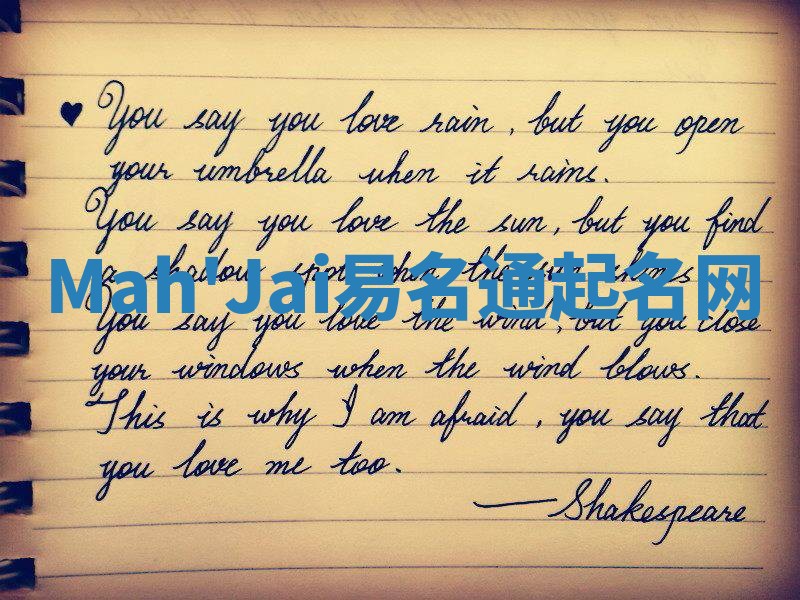 ♥ You say you love rain, but you open
your umbrella when it rains.
You say you love the sun, but you find
a shadow spot when the sun shines
Mah'Jai易名通起名网
You say you love the wind, but you close
your windows when the wind blows.
This is why I am afraid, you say that
you love me too.
—Shakespeare